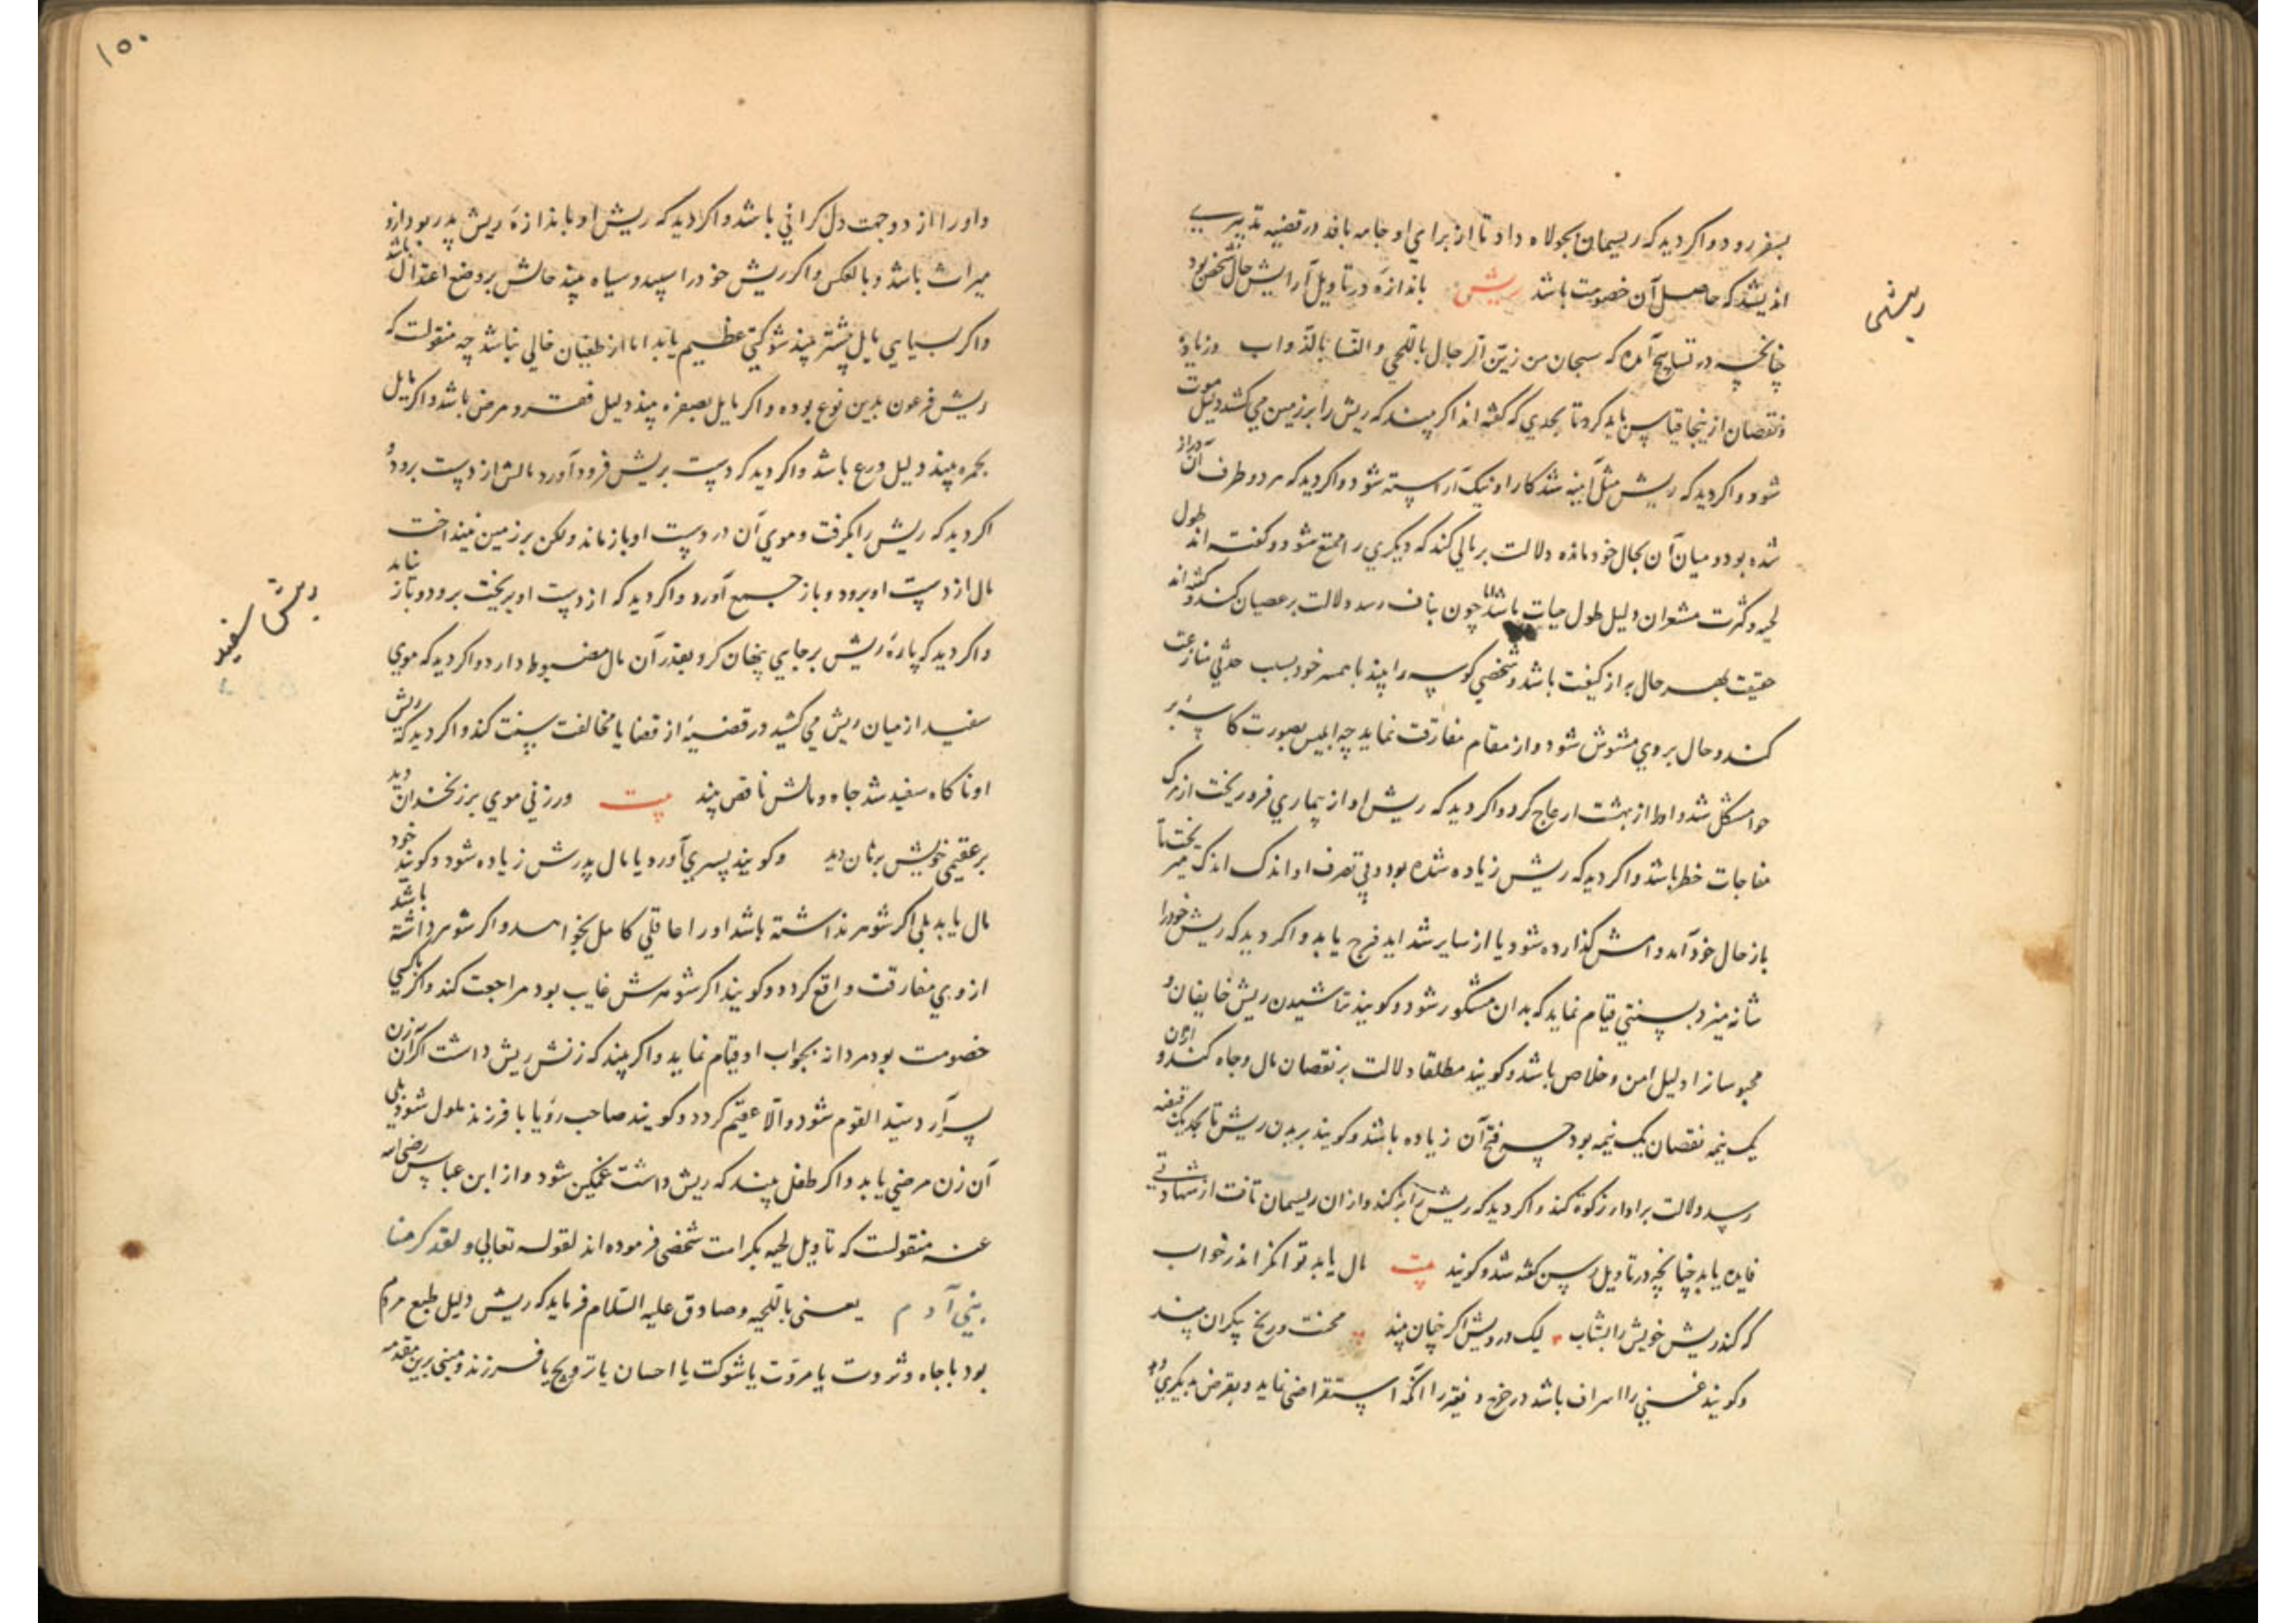 ریش
بسفر رود و اگر دید که ریسمان بجولاه داد تا از برای او جامه بافد در قضیه تدبیری
اندیشد که حاصل آن خصومت باشد ریش باندازه در تاویل آرایش حال شخص بود
چنانچه در تسابیح آمده که سبحان من زین الرجال باللحی و النسا بالذواب و زیاده
و نقصان ازینجا قیاس باید کرد تا بحدی که گفته اند اگر بیند که ریش را بر زمین می کشد دلیل موت
شود و اگر دید که ریش مثل آینه شد کار او نیک آراسته شود و اگر دید که هر دو طرف آن دراز
شده بود و میان آن بحال خود مانده دلالت بر مالی کند که دیگری را ممتع شود و گفته اند طول
لحیه و کثرت مشعران دلیل طول حیات باشد اما چون بناف رسد دلالت بر عصیان کند و گفته اند
حقیقت بهر حال به از کیفیت باشد و شخصی کوسه را بیند با همسر خود بسبب حدثی منازعت
کند و حال بروی مشوش شود و از مقام مفارقت نماید چه ابلیس بصورت کاسه بر
حوا مشکل شد و او را از بهشت ازعاج کرد و اگر دید که ریش او از بیماری فرو ریخت از مرگ
مفاجات خطر باشد و اگر دید که ریش زیاده شده بود و بی تصرف او اندک اندک میریخت تا
باز حال خود آمد وامش گذارده شود یا از سایر شداید فرج یابد و اگر دید که ریش خود را
شانه میزد بسنتی قیام نماید که بدان مشکور شود و گویند تراشیدن ریش خایفان و
محبوسانرا دلیل امن و خلاص باشد و گویند مطلقا دلالت بر نقصان مال و جاه کند و ازان
یک نیمه نقصان یک نیمه بود چه قبح آن زیاده باشد و گویند بریدن ریش تا بحد یک قبضه
رسد دلالت بر ادا زکوة کند و اگر دید که ریش را بر کند و ازان ریسمان تافت از شهادتی
فایده یابد چنانچه در تاویل رسن گفته شد و گویند بیت مال یابد توانگر اندر خواب
که کند ریش خویش را بشتاب لیک درویش اگر چنان بیند محنت و رنج بیکران بیند
و گویند غنی را اسراف باشد در خرج و فقیر را آنکه استقراضی نماید و بقرض بدیگری دهد
۱۵۰
و او را از دو جهت دل گرانی باشد و اگر دید که ریش او باندازه ریش پدر بود ازو
میراث باشد و بالعکس و اگر ریش خود را سپید و سیاه بیند حالش بر وضع اعتدال باشد
و اگر بسیاهی مایل بیشتر بیند شوکتی عظیم یابد اما از طغیان خالی نباشد چه منقولست که
ریش فرعون بدین نوع بوده و اگر مایل بصفره بیند دلیل فقر و مرض باشد و اگر مایل
بحمره بیند دلیل ورع باشد و اگر دید که دست بریش فرود آورد مالش از دست برود و
اگر دید که ریش را بگرفت و موی آن در دست او باز ماند ولکن بر زمین نینداخت
مال از دست او برود و باز جمع آورد و اگر دید که از دست او بریخت برود و باز نیاید
و اگر دید که پاره ریش بر جایی پنهان کرد بقدر آن مال مضبوط دارد و اگر دید که موی
ریش سفید
سفید از میان ریش می کشید در قضیه از قضایا مخالفت سنت کند و اگر دید که ریش
او ناگاه سفید شد جاه و مالش ناقص بیند بیت ور زنی موی بر زنخدان دید
بر عقیمی خویش برهان دید و گویند پسری آورد یا مال پدرش زیاده شود و گویند خود
مال یابد بلی اگر شوهر نداشته باشد او را عاقلی کامل بخواهد و اگر شوهر داشته باشد
از وی مفارقت واقع گردد و گویند اگر شوهرش غایب بود مراجعت کند و اگر با کسی
خصومت بود مردانه بجواب او قیام نماید و اگر بیند که زنش ریش داشت اگر آن زن
پسر آرد سید القوم شود و الا عقیم گردد و گویند صاحب رؤیا با فرزند ملول شود بلی
آن زن مرضی یابد و اگر طفل بیند که ریش داشت غمگین شود و از ابن عباس رضی الله
عنه منقولست که تاویل لحیه بکرامت شخص فرموده اند لقوله تعالی و لقد کرمنا
بنی آدم یعنی باللحیه و صادق علیه السلام فرماید که ریش دلیل طبع مردم
بود با جاه و ثروت یا مروت یا شوکت یا احسان یا ترویح یا فرزند و مبنی برین مقدمه